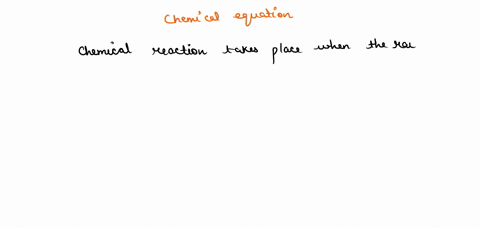 Chemical equation
Chemical reaction takes place when the